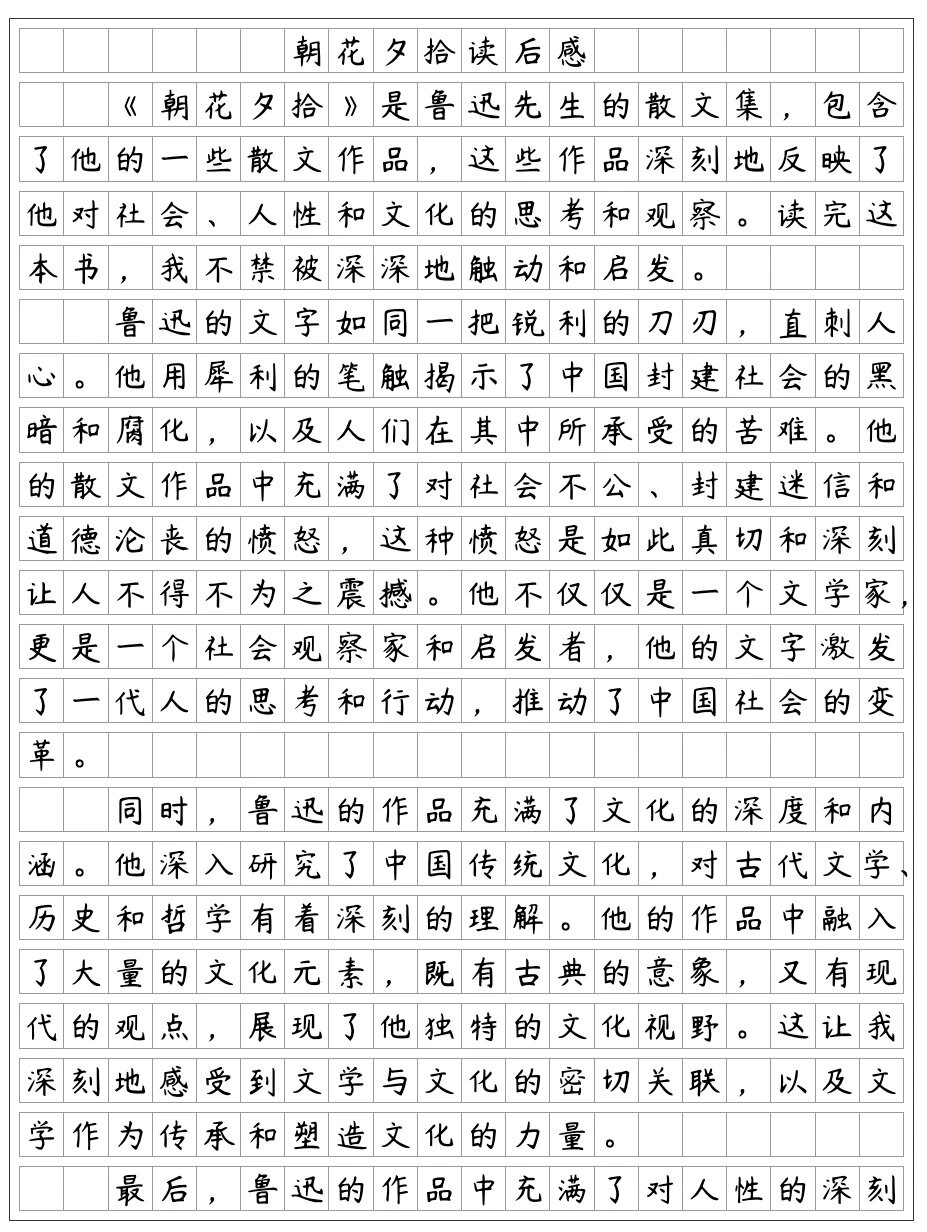 朝花夕拾读后感
《朝花夕拾》是鲁迅先生的散文集，包含
了他的一些散文作品，这些作品深刻地反映了
他对社会、人性和文化的思考和观察。读完这
本书，我不禁被深深地触动和启发。
鲁迅的文字如同一把锐利的刀刃，直刺人
心。他用犀利的笔触揭示了中国封建社会的黑
暗和腐化，以及人们在其中所承受的苦难。他
的散文作品中充满了对社会不公、封建迷信和
道德沦丧的愤怒，这种愤怒是如此真切和深刻
让人不得不为之震撼。他不仅仅是一个文学家，
更是一个社会观察家和启发者，他的文字激发
了一代人的思考和行动，推动了中国社会的变
革。
同时，鲁迅的作品充满了文化的深度和内
涵。他深入研究了中国传统文化，对古代文学、
历史和哲学有着深刻的理解。他的作品中融入
了大量的文化元素，既有古典的意象，又有现
代的观点，展现了他独特的文化视野。这让我
深刻地感受到文学与文化的密切关联，以及文
学作为传承和塑造文化的力量。
最后，鲁迅的作品中充满了对人性的深刻